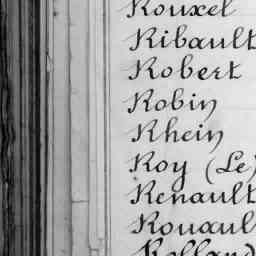 Rouxel
Ribault
Robert
Robin
Rhein
Roy (Le)
Renault
Rouault
Rolland